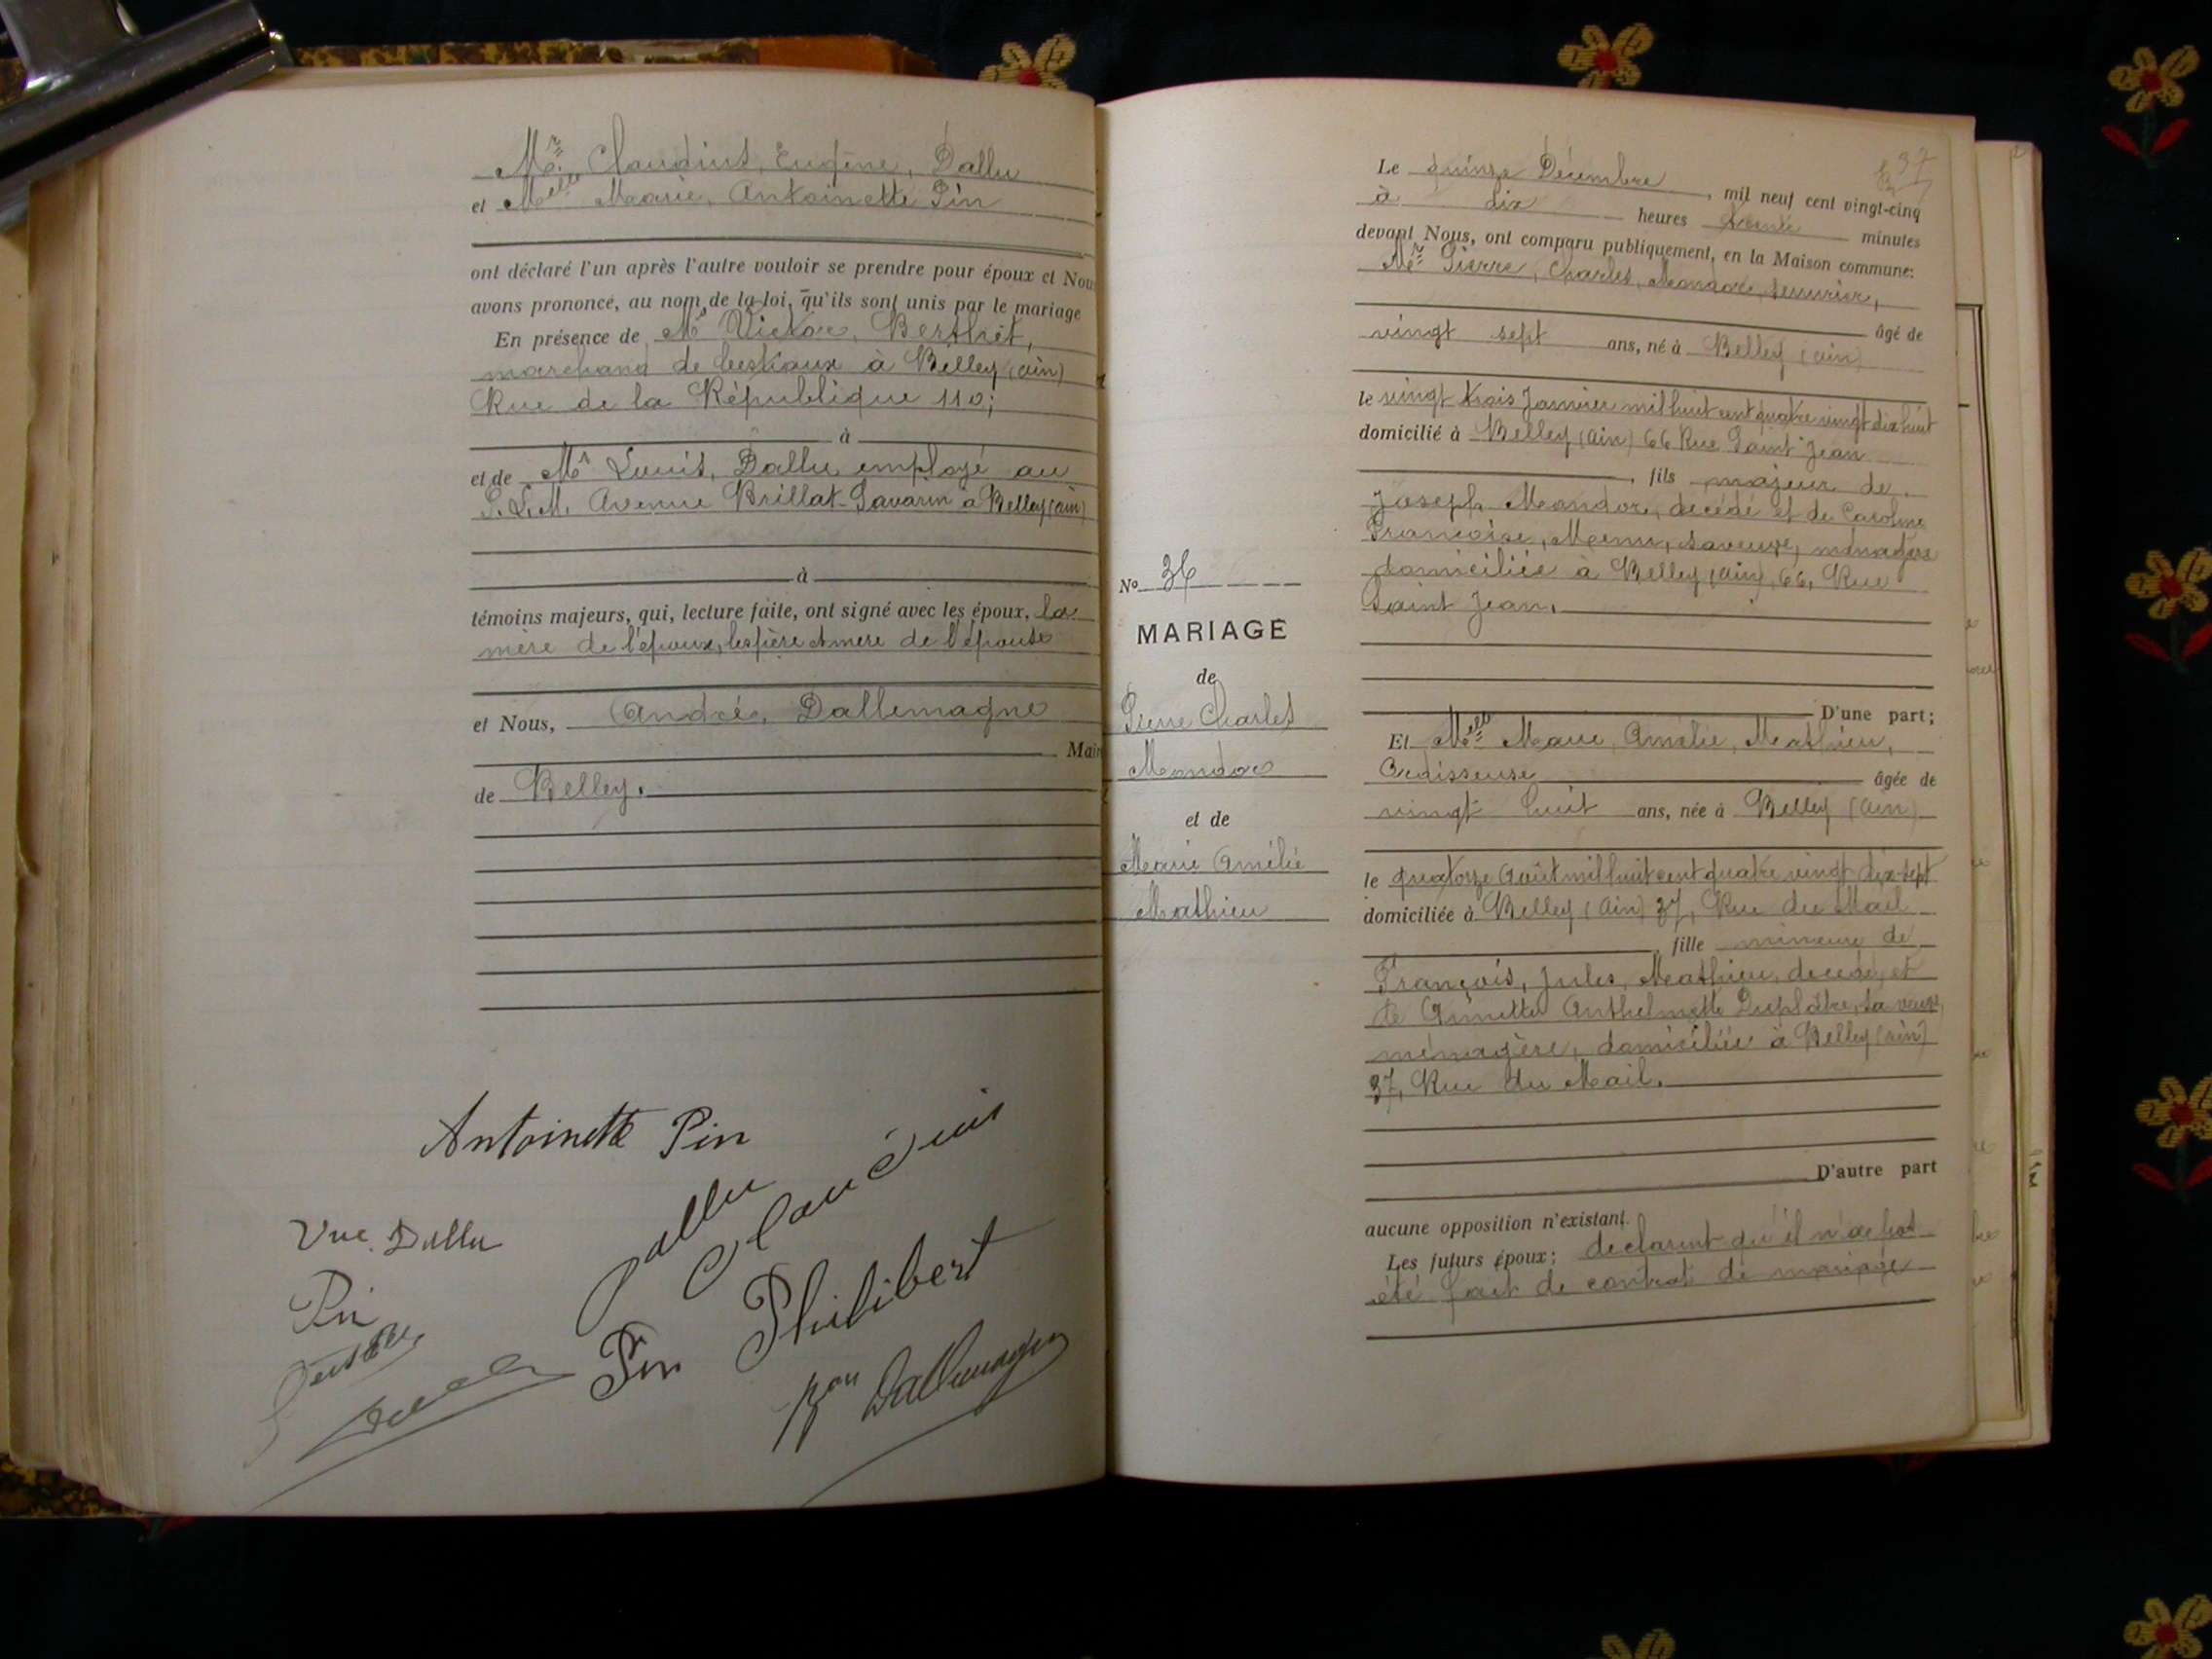 Mr Claudius, Eugène, Dallu
et Melle Marie, Antoinette Pin
ont déclaré l'un après l'autre vouloir se prendre pour époux et Nous
avons prononcé, au nom de la loi, qu'ils sont unis par le mariage
En présence de Mr Victor, Berthet,
marchand de bestiaux à Belley (Ain)
Rue de la République 110;
à
et de Mr Louis, Dallu employé au
P.L.M. Avenue Brillat-Savarin à Belley (Ain)
à
témoins majeurs, qui, lecture faite, ont signé avec les époux, la
mère de l'époux, les père et mère de l'épouse
et Nous, André, Dallemagne
Maire
de Belley.
Antoinette Pin
Dallu Claudius
Vve Dallu
Pin
Pin Philibert
Bon Dallemagne
37
Le quinze Décembre, mil neuf cent vingt-cinq
à dix heures trente minutes
devant Nous, ont comparu publiquement, en la Maison commune:
Mr Pierre, Charles, Mandor, serrurier,
âgé de
vingt sept ans, né à Belley (Ain)
le vingt trois Janvier mil huit cent quatre vingt dix huit
domicilié à Belley (Ain) 66 Rue Saint Jean
, fils majeur de
Joseph Mandor, décédé et de Caroline
Françoise, sa veuve, ménagère
domiciliée à Belley (Ain), 66, Rue
Saint Jean.
D'une part;
Et Melle Marie, Amélie, Mathieu,
Ourdisseuse âgée de
vingt huit ans, née à Belley (Ain)
le quatorze Août mil huit cent quatre vingt dix-sept
domiciliée à Belley (Ain) 37, Rue du Mail
, fille mineure de
François, Jules, Mathieu, décédé, et
de Anthelmette Duplâtre, sa veuve,
ménagère, domiciliée à Belley (Ain)
37, Rue du Mail.
D'autre part
aucune opposition n'existant.
Les futurs époux; déclarent qu'il n'a pas
été fait de contrat de mariage
No 36
MARIAGE
de
Pierre Charles
Mandor
et de
Marie Amélie
Mathieu